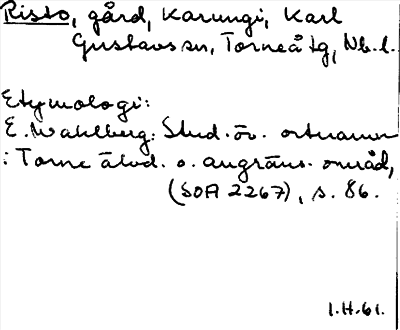 Risto, gård, Karungi, Karl
Gustavs sn, Torneå tg, Nb. l.
Etymologi:
E. Wahlberg: Stud. öv. ortnamn
i Torne älvd. o. angräns. områd,
(SOA 2267), s. 86.
I.H.61.